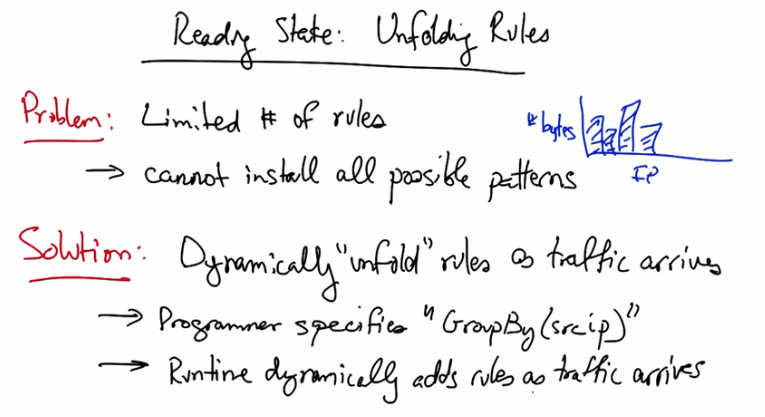 Reading State: Unfolding Rules
Problem: Limited # of rules
→ cannot install all possible patterns
# bytes
IP
Solution: Dynamically "unfold" rules as traffic arrives
→ Programmer specifies "GroupBy(srcip)"
→ Runtime dynamically adds rules as traffic arrives